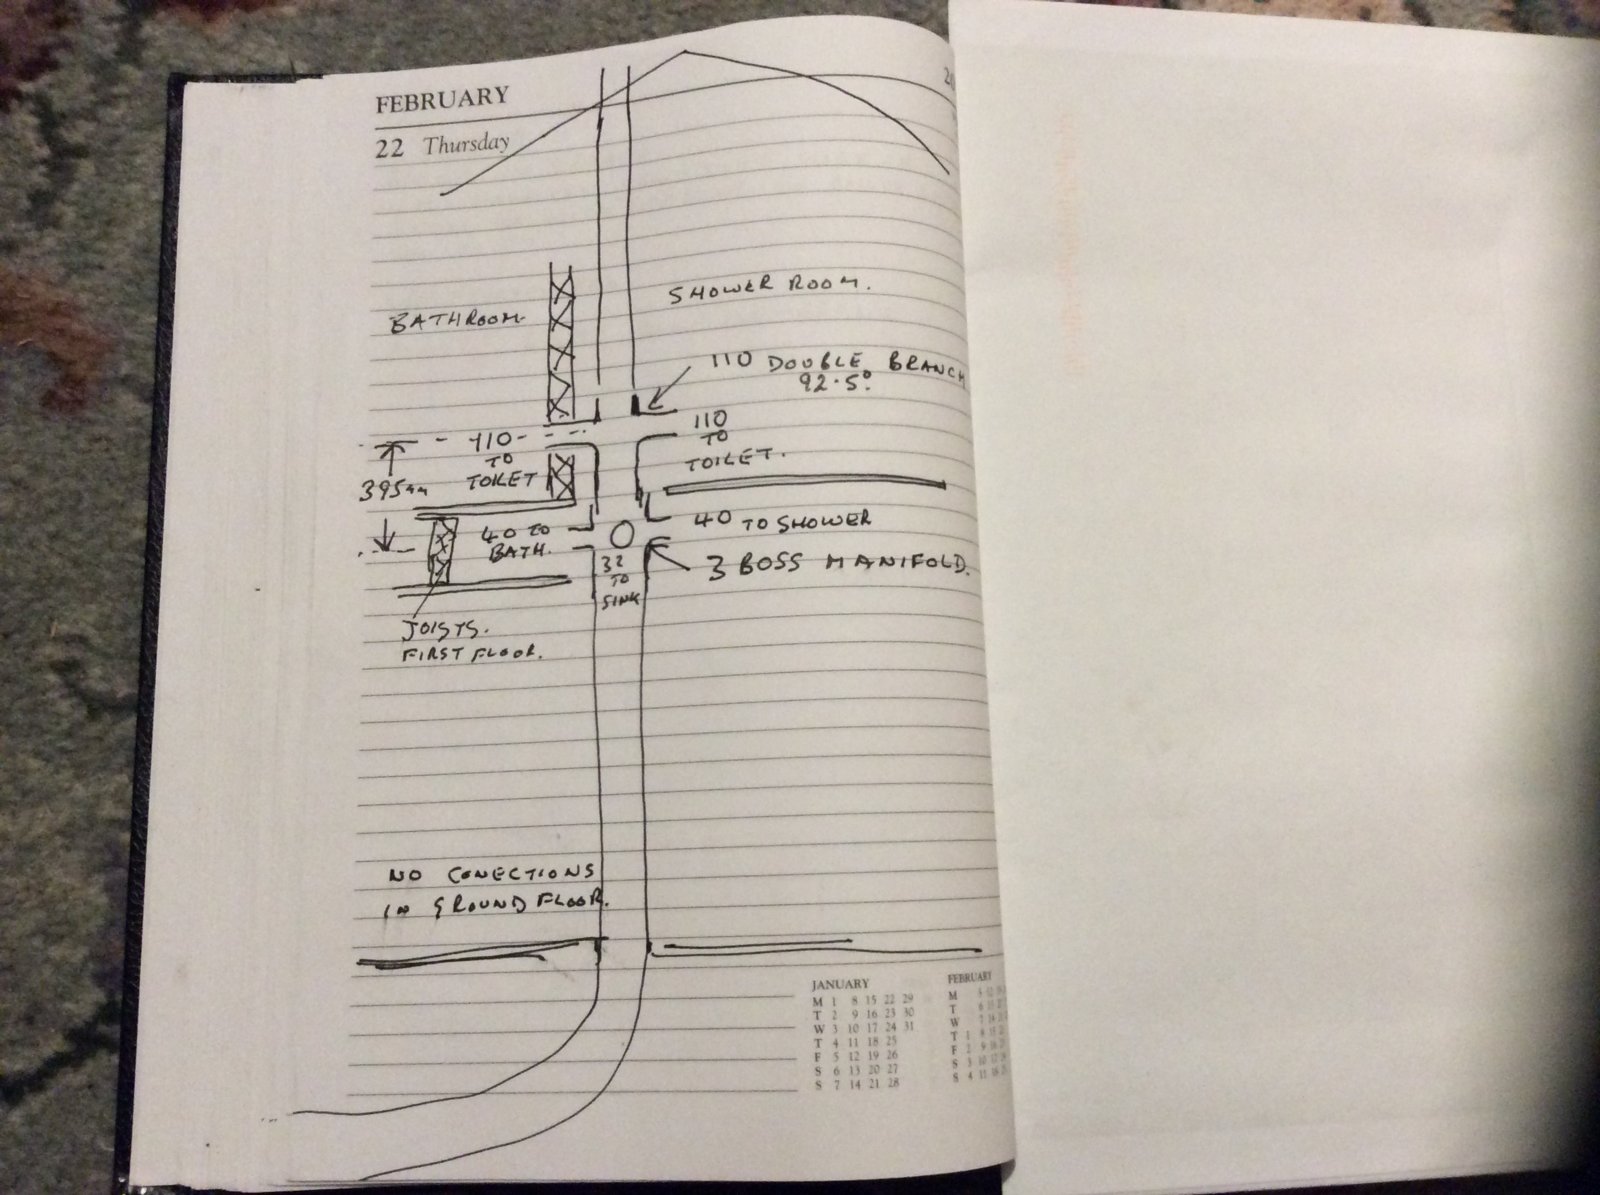 FEBRUARY
22 Thursday
SHOWER ROOM.
BATHROOM.
110 DOUBLE BRANCH
92.5°
110
TO
TOILET
110
TO
TOILET.
395mm
40 TO
BATH.
40 TO SHOWER
3 BOSS MANIFOLD.
32
TO
SINK
JOISTS.
FIRST FLOOR.
NO CONECTIONS
IN GROUND FLOOR.
JANUARY
M 1 8 15 22 29
T 2 9 16 23 30
W 3 10 17 24 31
T 4 11 18 25
F 5 12 19 26
S 6 13 20 27
S 7 14 21 28
FEBRUARY
M 5 12
T 6
W 7 14
T 1 8 15
F 2 9
S 3 10
S 4 11